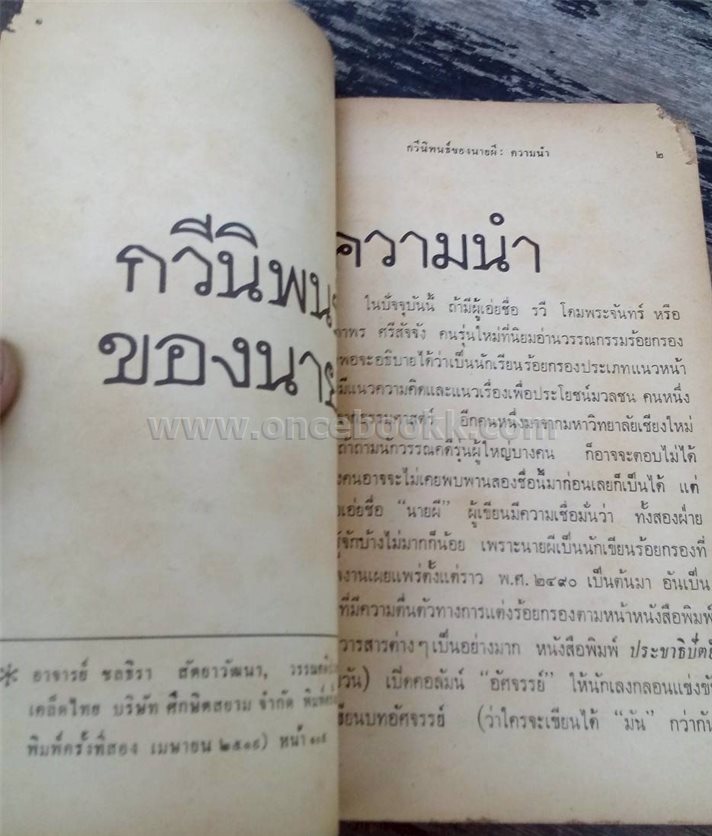 กวีนิพน
ของนาย
* อาจารย์ ชลธิรา สัตยาวัฒนา, วรรณคดี
เคล็ดไทย บริษัท ศึกษิตสยาม จำกัด พิมพ์ครั้ง
พิมพ์ครั้งที่สอง เมษายน ๒๕๑๙) หน้า ๑๐๙
กวีนิพนธ์ของนายผี: ความนำ ๒
ความนำ
ในปัจจุบันนี้ ถ้ามีผู้เอ่ยชื่อ รวี โดมพระจันทร์ หรือ
ศรีสัจจัง คนรุ่นใหม่ที่นิยมอ่านวรรณกรรมร้อยกรอง
พอจะอธิบายได้ว่าเป็นนักเรียนร้อยกรองประเภทแนวหน้า
มีแนวความคิดและแนวเรื่องเพื่อประโยชน์มวลชน คนหนึ่ง
ธรรมศาสตร์ อีกคนหนึ่งมาจากมหาวิทยาลัยเชียงใหม่
ถ้าถามนักวรรณคดีรุ่นผู้ใหญ่บางคน ก็อาจจะตอบไม่ได้
งคนอาจจะไม่เคยพบพานสองชื่อนี้มาก่อนเลยก็เป็นได้ แต่
เอ่ยชื่อ “นายผี” ผู้เขียนมีความเชื่อมั่นว่า ทั้งสองฝ่าย
รู้จักบ้างไม่มากก็น้อย เพราะนายผีเป็นนักเขียนร้อยกรองที่
งานเผยแพร่ตั้งแต่ราว พ.ศ. ๒๔๙๐ เป็นต้นมา อันเป็น
ที่มีความตื่นตัวทางการแต่งร้อยกรองตามหน้าหนังสือพิมพ์
วารสารต่างๆ เป็นอย่างมาก หนังสือพิมพ์ ประชาธิปไตย
วัน) เปิดคอลัมน์ “อัศจรรย์” ให้นักเลงกลอนแข่งขัน
เขียนบทอัศจรรย์ (ว่าใครจะเขียนได้ “มัน” กว่ากัน
www.oncebookk.com